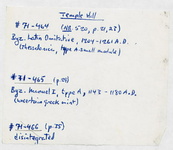 Temple Hill
# 71-464 (NB 520, p. 31, 23)
Byz. Latin Imitative, 1204-1261 A.D.
(Thessalonica, type A small module)
# 71-465 (p. 34)
Byz. Manuel I, type A, 1143-1180 A.D.
(uncertain greek mint)
# 71-466 (p. 35)
disintegrated